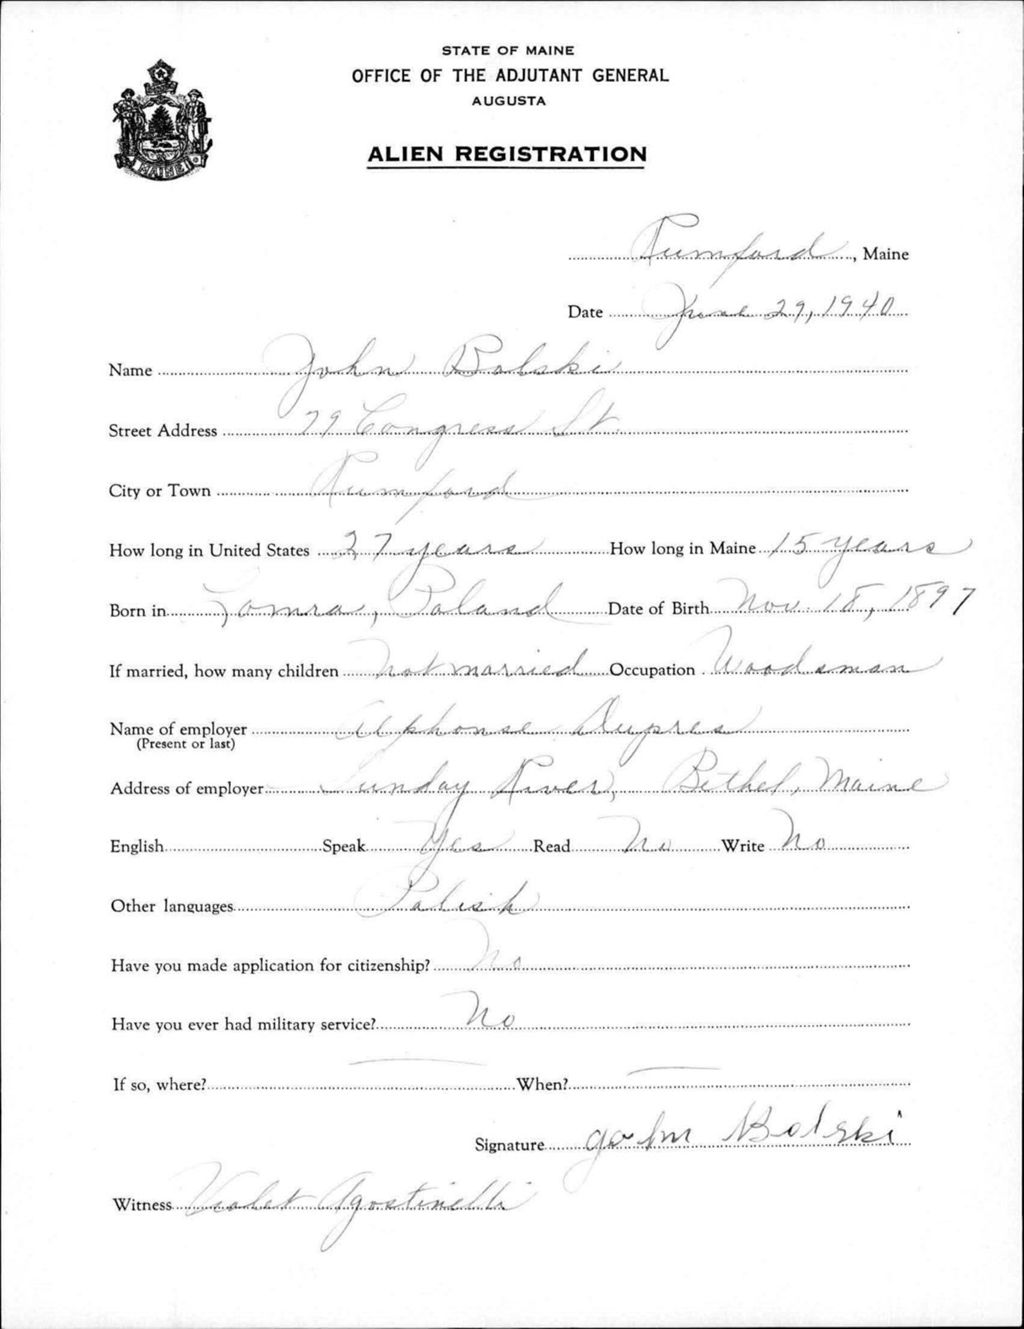 STATE OF MAINE
OFFICE OF THE ADJUTANT GENERAL
AUGUSTA
ALIEN REGISTRATION
MAINE
Rumford, Maine
Date June 29, 1940
Name John Bolski
Street Address 79 Congress St.
City or Town Rumford
How long in United States 27 years How long in Maine 15 years
Born in Lomra, Poland Date of Birth Nov. 18, 1897
If married, how many children not married Occupation Woodsman
Name of employer Alphonse Dupres
(Present or last)
Address of employer Sunday River, Bethel, Maine
English Speak Yes Read No Write No
Other languages Polish
Have you made application for citizenship? No
Have you ever had military service? No
If so, where? — When? —
Signature John Bolski
Witness Violet Agostinelli